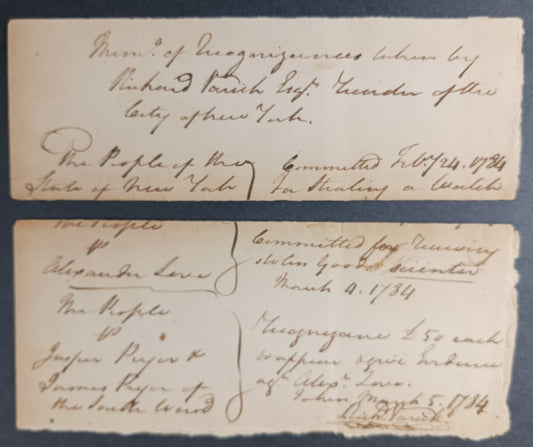 Mem.o of Recognizances taken by
Richard Varick Esq.r Recorder of the
City of New York.
The People of the
State of New York
Committed Feb.y 24. 1784
for Stealing a Watch
The People
vs
Alexander Love
Committed for Receiving
stolen Goods scienter
March 4. 1784
The People
vs
Jasper Pryor &
James Pryor of
the South Ward
Recognizance £50 each
to appear & give Evidence
ag.t Alex.r Love.
Taken March 5. 1784.
Rich.d Varick